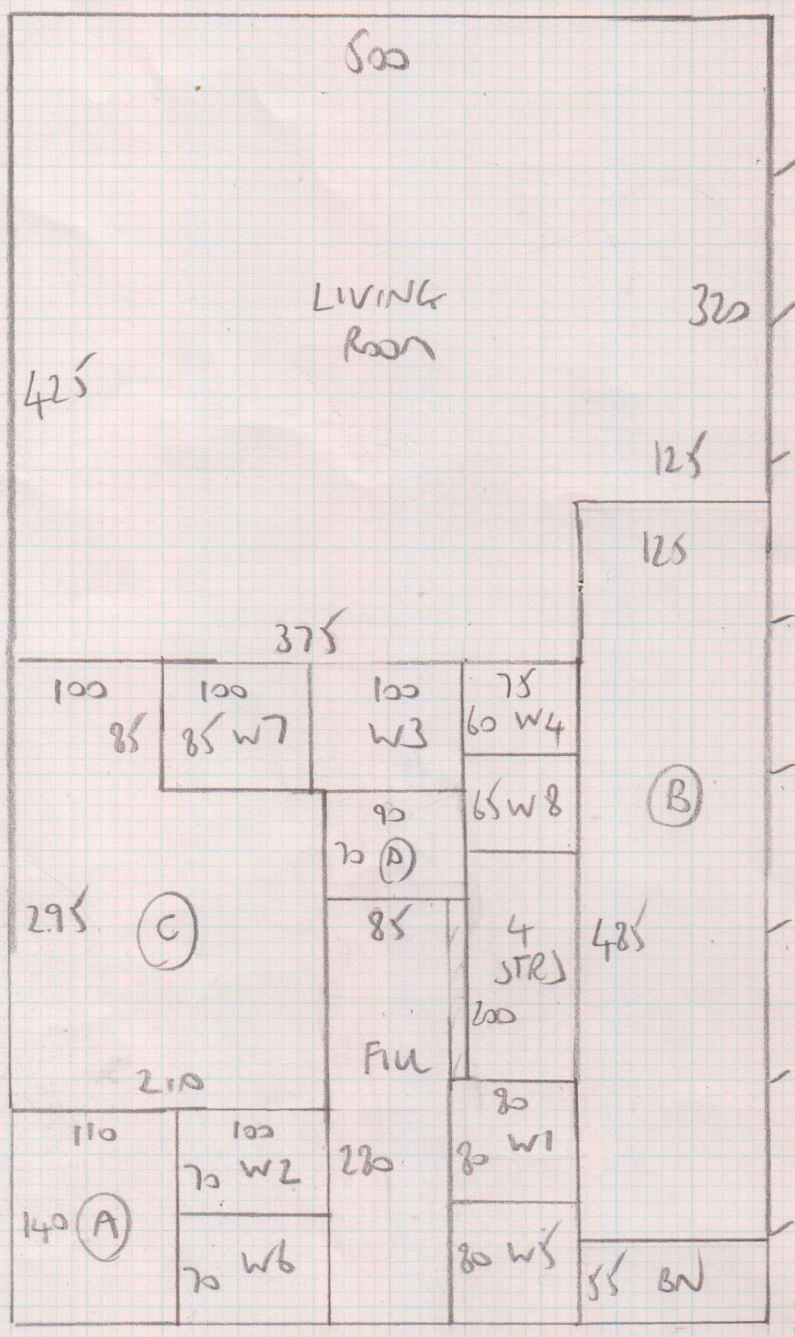 500
LIVING
ROOM
320
425
125
125
375
100
85
100
85 W7
100
W3
75
60 W4
65 W8
B
90
70 D
295
C
85
4
STRS
200
485
FILL
210
280
80
80 W1
110
140 A
100
70 W2
70 W6
80 W5
55 BN